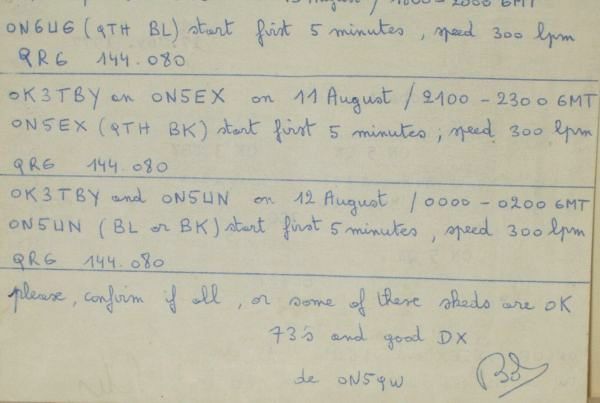 August / 1800 - 2000 GMT
ON6UG (QTH BL) start first 5 minutes, speed 300 lpm
QRG 144.080
OK3TBY an ON5EX on 11 August / 2100 - 2300 GMT
ON5EX (QTH BK) start first 5 minutes; speed 300 lpm
QRG 144.080
OK3TBY and ON5UN on 12 August / 0000 - 0200 GMT
ON5UN (BL or BK) start first 5 minutes, speed 300 lpm
QRG 144.080
please, confirm if all, or some of these skeds are OK
73's and good DX
de ON5QW